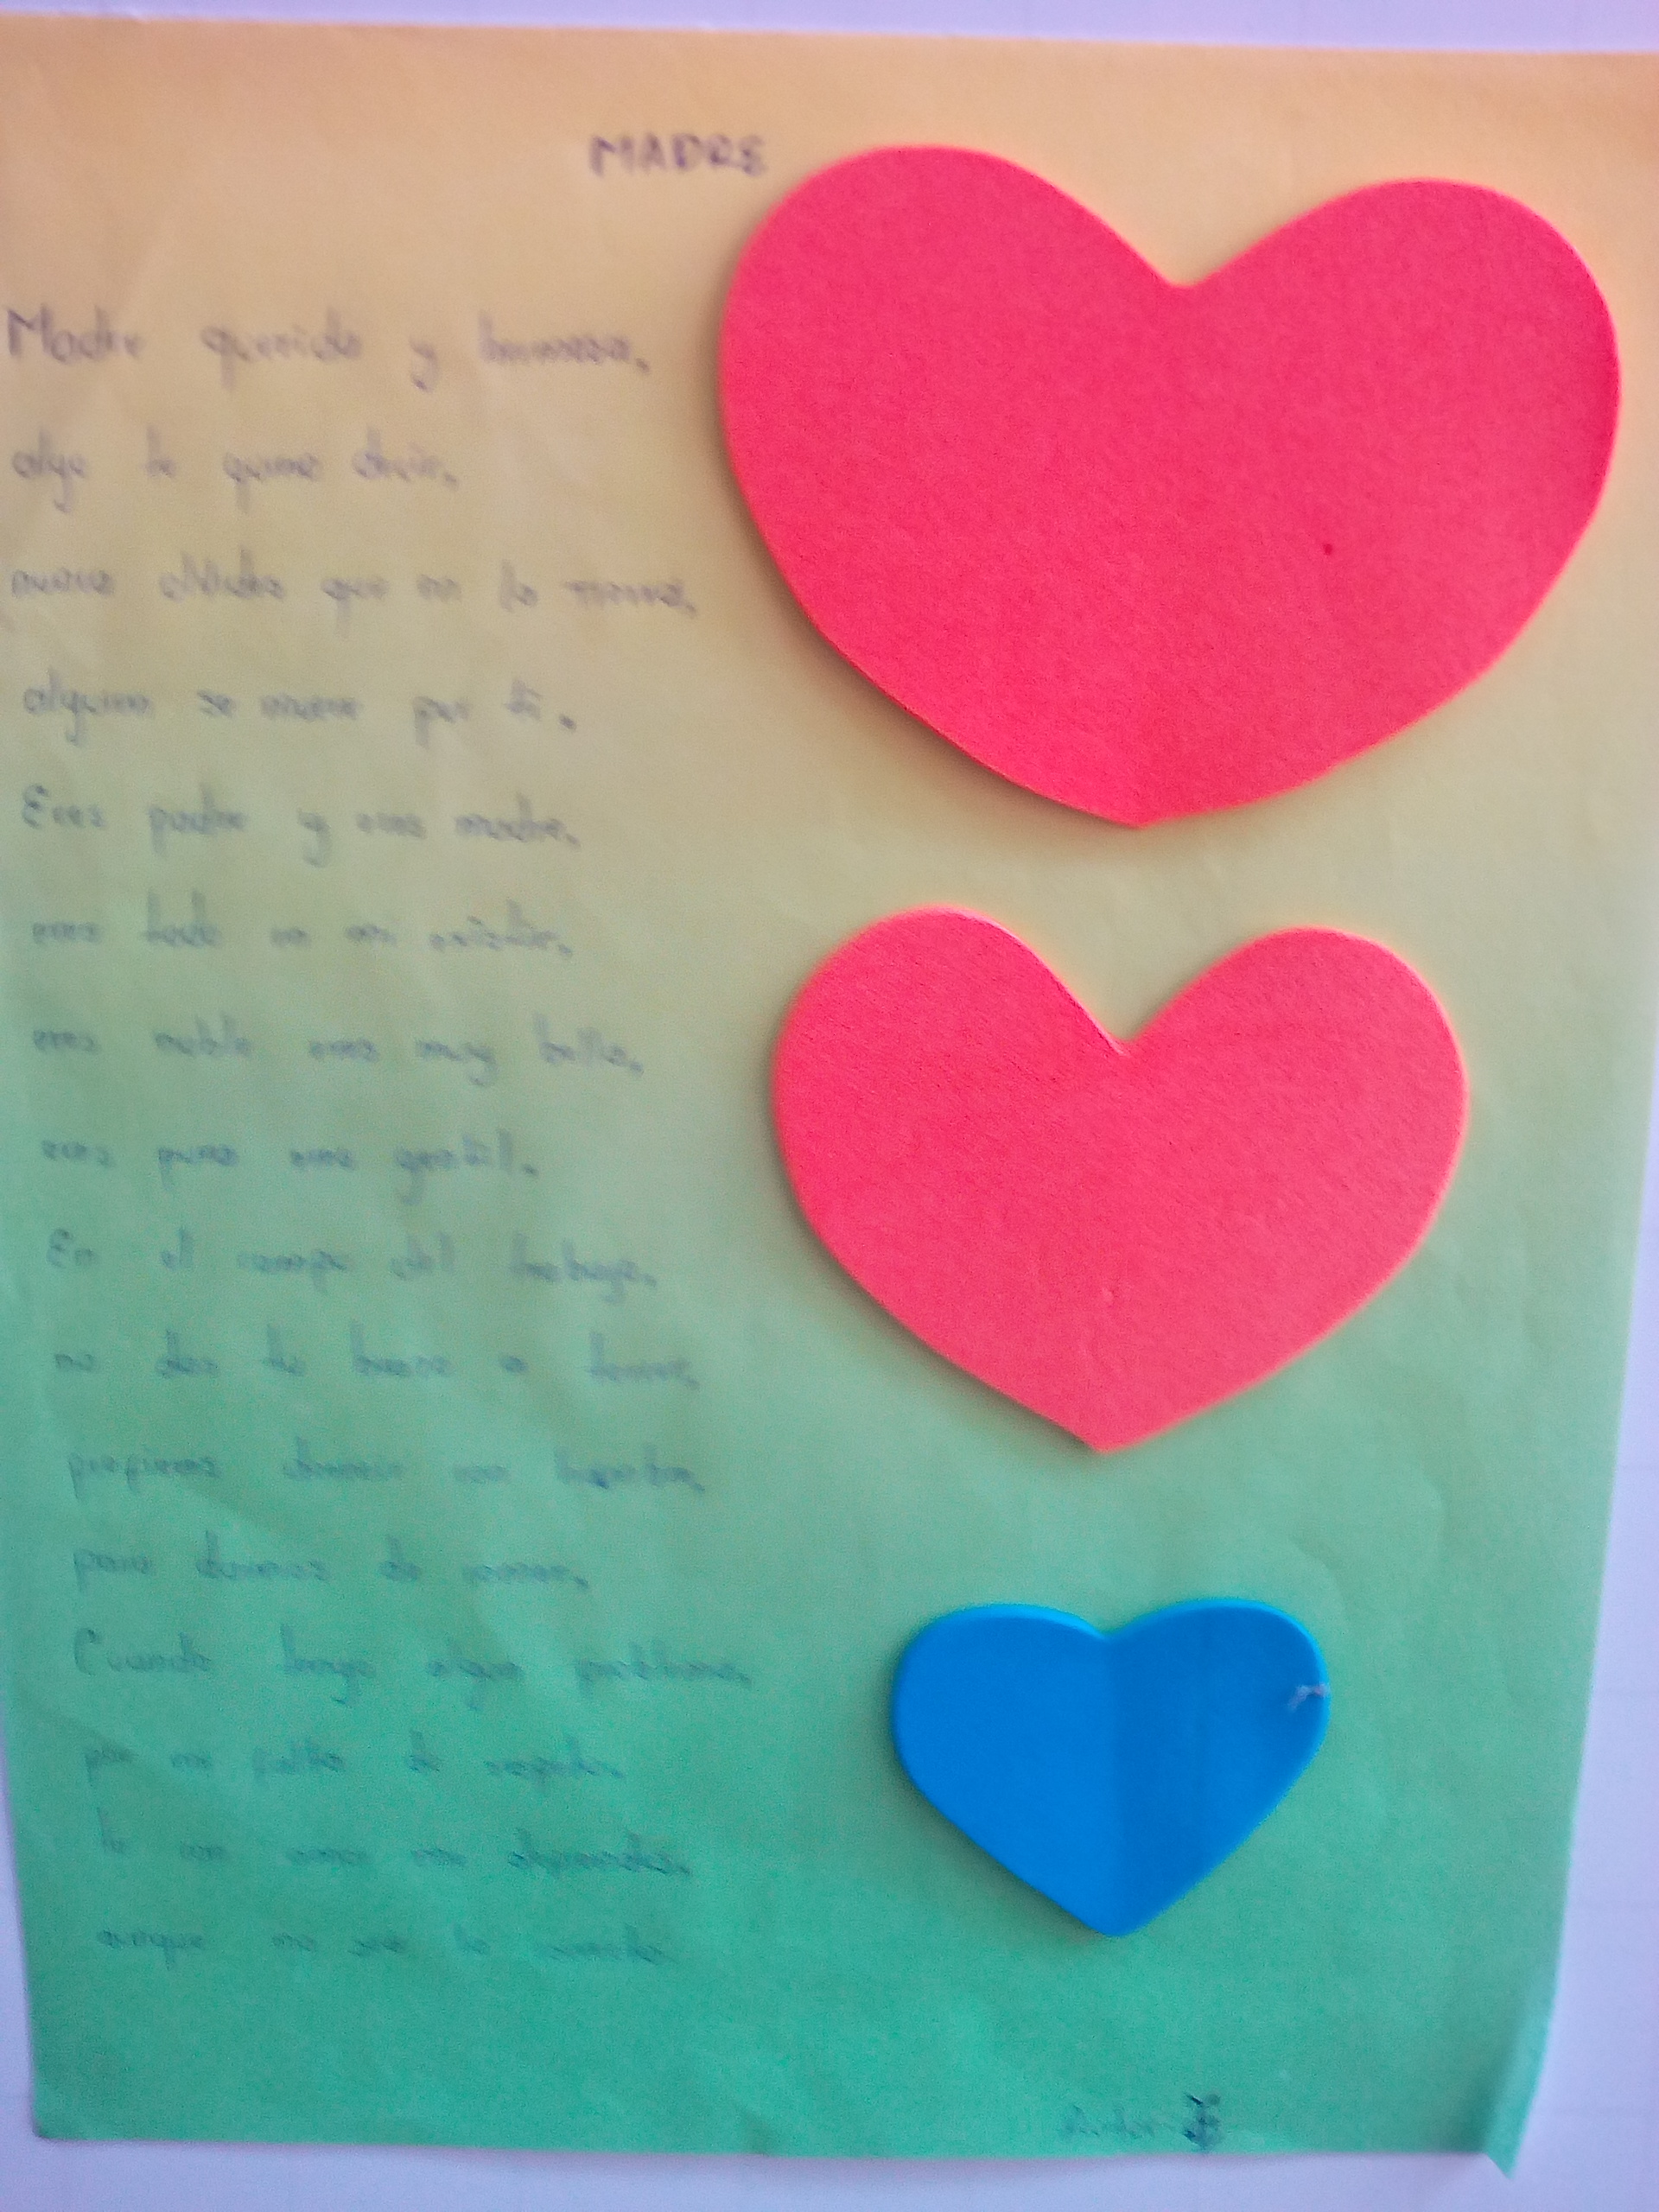 MADRE
Madre querida y hermosa,
algo te quiero decir,
nunca olvides que en la
alguien se muere por ti.
Eres padre y eres madre,
eres todo en mi existir,
eres noble eres muy bella,
eres pura eres gentil.
En el campo del trabajo,
no das tu brazo a torcer,
prefieres dormir con hambre,
para darnos de comer.
Cuando tengo algun problema,
por mi falta de
tu con amor me
aunque no sea lo